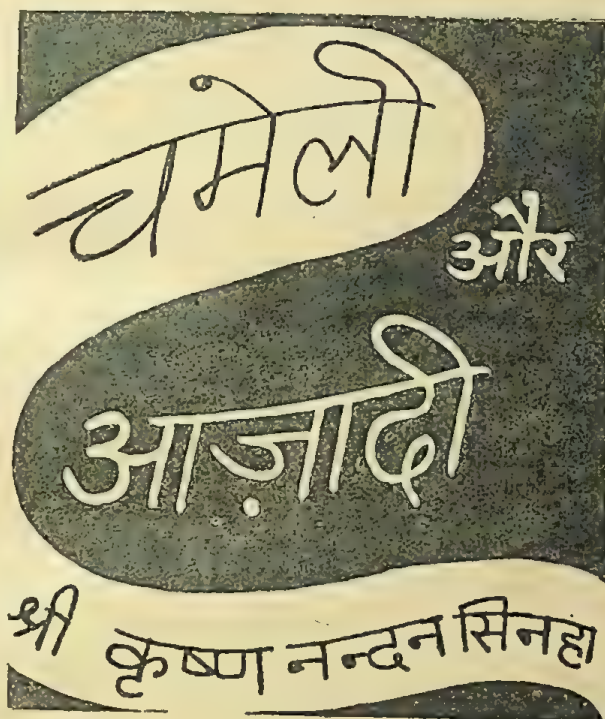 चमेली
और
आज़ादी
श्री कृष्ण नन्दन सिनहा